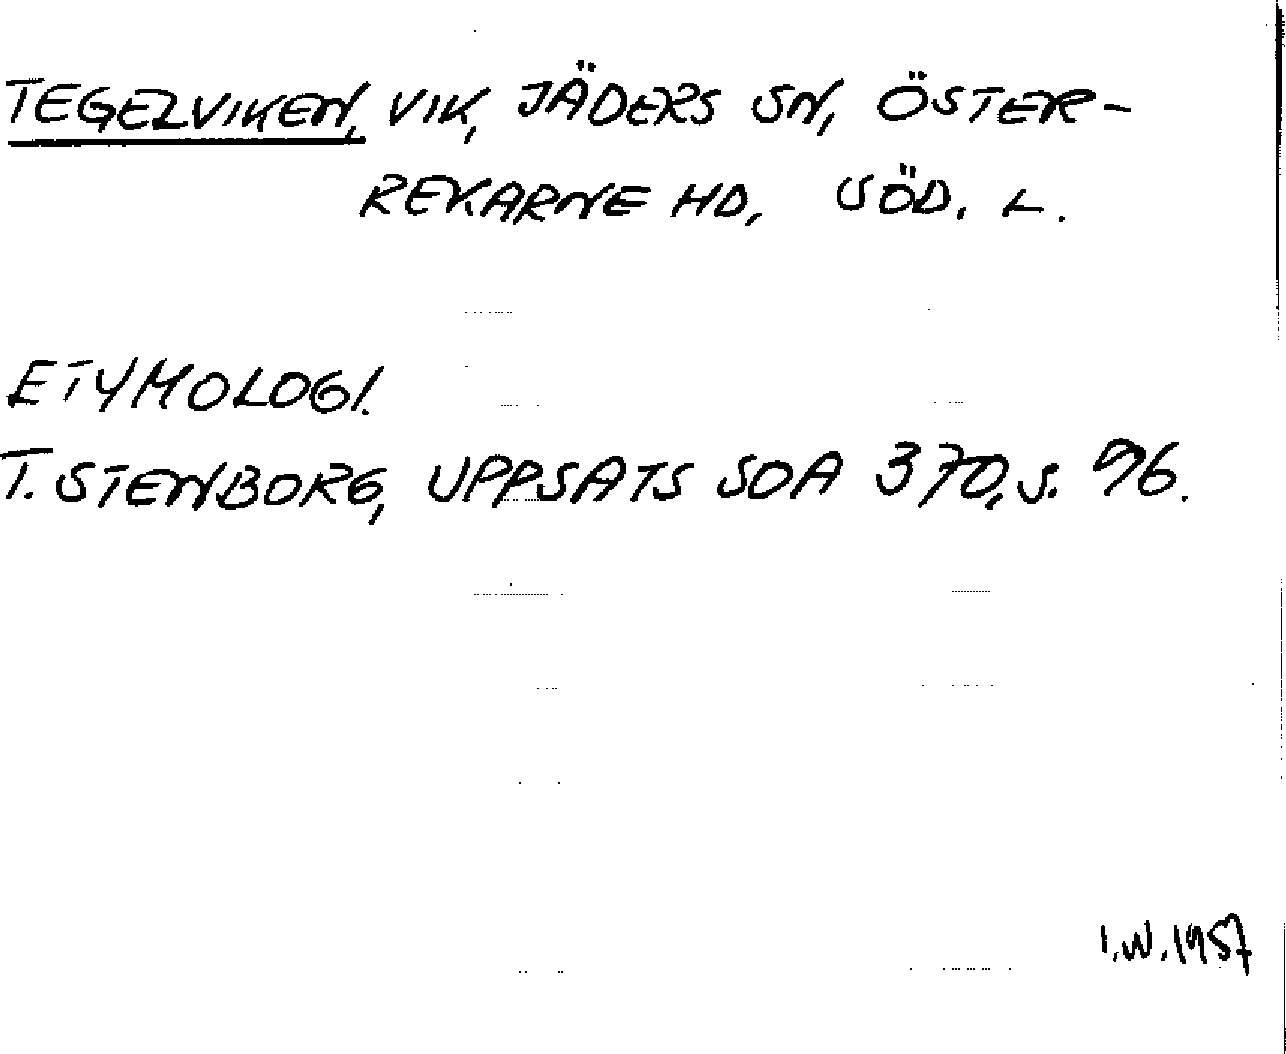 TEGELVIKEN, VIK, JÄDERS SN, ÖSTER-
REKARNE HD, SÖD. L.
ETYMOLOGI.
T. STENBORG, UPPSATS SOA 370, S. 96.
I.W. 1957